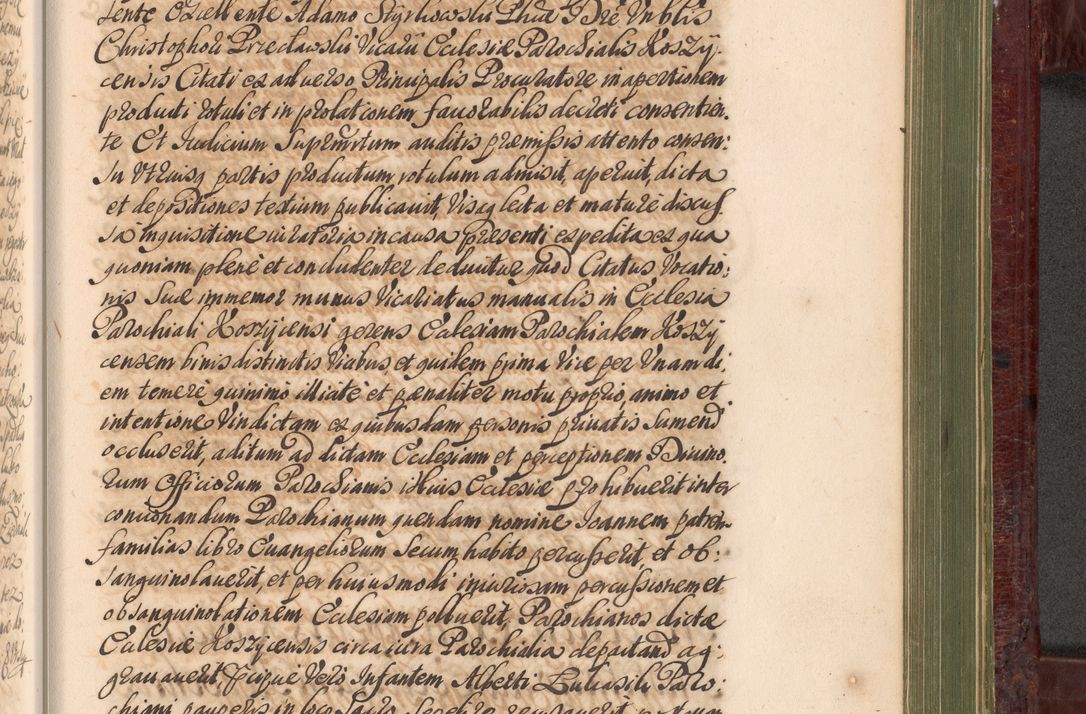 tente Excellente Adamo Styrkowski Phiae Dre Vnblis
Christophori Przecławski Vicarii Ecclesiæ Parochialis Koszy-
censis Citati ex adverso Principalis Procuratore in apertionem
producti rotuli et in prolationem favorabilis decreti consentien:
te Et Iudicium Supremum auditis præmissis attento consen:
su Vtriusq partis productum rotulum admisit, aperuit, dicta
et depositiones testium publicavit, Visaq lecta et mature discus
sa inquisitione iuratoria in causa præsenti expedita ex qua
quoniam plenè et concludenter deducitur quod Citatus Vocatio:
nis Suæ immemor munus Vicariatus manualis in Ecclesia
Parochiali Koszycensi gerens Ecclesiam Parochialem Koszy
censem binis distinctis Vicibus, et quidem prima Vice per Vnam di:
em temerè quinimo illicitè et pænaliter motu proprio, animo et
intentione Vindictam ex quibusdam personis privatis Sumend
occluserit, aditum ad dictam Ecclesiam et perceptionem Divino,
rum Officiorum Parochianis illius Ecclesiæ prohibuerit inter
concionandum Parochianum quendam nomine Joannem patrem
familias libro Evangeliorum Secum habito percusserit, et ob:
sanguinolaverit, et per huiusmodi iniuriosam percussionem et
obsanguinolationem Ecclesiam polluerit, Parochianos dictæ
Ecclesiæ Koszycensis circa iura Parochialia depactand ag:
gravaverit, Cuique Verò Infantem Alberti Lukasik Paro:
chiani pauperis in loco Sacro Sepelire recusaverit